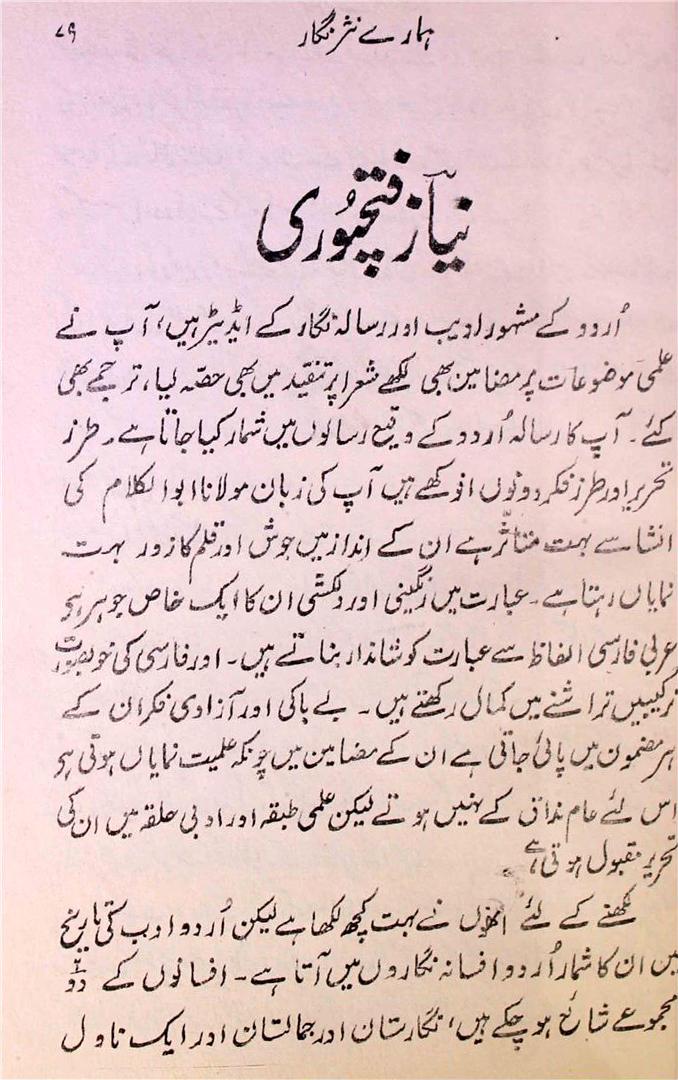 ہمارے نثر نگار
۷۹
نیاز فتحپوری
اُردو کے مشہور ادیب اور رسالہ نگار کے ایڈیٹر ہیں، آپ نے
علمی موضوعات پر مضامین بھی لکھے شعرا پر تنقید میں بھی حصہ لیا، ترجمے بھی
کئے۔ آپ کا رسالہ اُردو کے وقیع رسالوں میں شمار کیا جاتا ہے۔ طرز
تحریر اور طرز فکر دونوں انوکھے ہیں آپ کی زبان مولانا ابوالکلام کی
انشا سے بہت متاثر ہے ان کے انداز میں جوش اور قلم کا زور بہت
نمایاں رہتا ہے۔ عبارت میں رنگینی اور دلکشی ان کا ایک خاص جوہر ہی
عربی فارسی الفاظ سے عبارت کو شاندار بناتے ہیں۔ اور فارسی کی خوبصورت
ترکیبیں تراشنے میں کمال رکھتے ہیں۔ بے باکی اور آزادی فکر ان کے
ہر مضمون میں پائی جاتی ہے ان کے مضامین میں چونکہ علمیت نمایاں ہوتی ہو
اس لئے عام مذاق کے نہیں ہوتے لیکن علمی طبقہ اور ادبی حلقہ میں ان کی
تحریر مقبول ہوتی ہے۔
لکھنے کے لئے انہوں نے بہت کچھ لکھا ہے لیکن اُردو ادب کی تاریخ
میں ان کا شمار اُردو افسانہ نگاروں میں آتا ہے۔ افسانوں کے دو
مجموعے شائع ہو چکے ہیں، نگارستان اور جمالستان اور ایک ناول